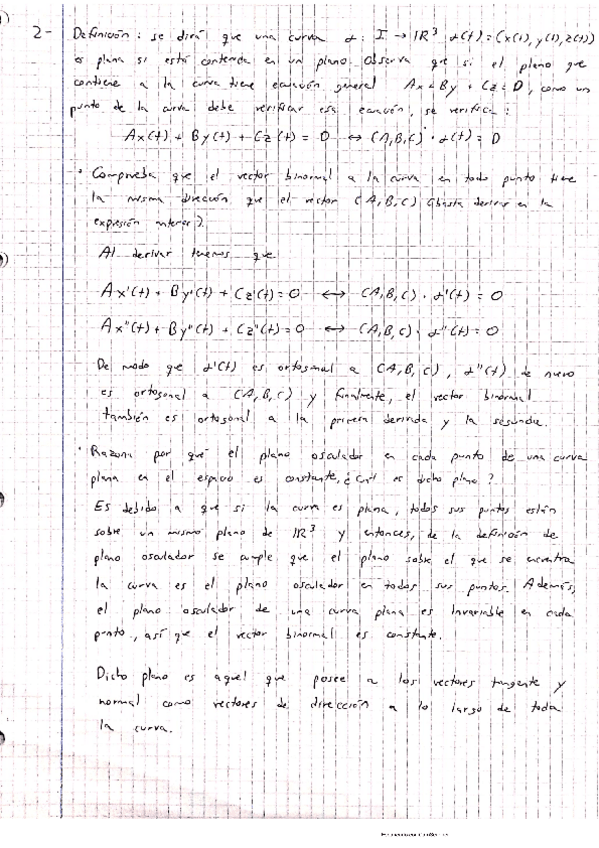 2- Definición: se dirá que una curva α: I → IR³ α(t)=(x(t), y(t), z(t))
es plana si está contenida en un plano. Observa que si el plano que
contiene a la curva tiene ecuación general Ax+By+Cz=D, como un
punto de la curva debe verificar esa ecuación, se verifica:
Ax(t) + By(t) + Cz(t) = D ↔ (A,B,C) · α(t) = D
· Comprueba que el vector binormal a la curva en todo punto tiene
la misma dirección que el vector (A,B,C) (basta derivar en la
expresión anterior).
Al derivar tenemos que
Ax'(t) + By'(t) + Cz'(t) = 0 ↔ (A,B,C) · α'(t) = 0
Ax"(t) + By"(t) + Cz"(t) = 0 ↔ (A,B,C) · α"(t) = 0
De modo que α'(t) es ortogonal a (A,B,C), α"(t) de nuevo
es ortogonal a (A,B,C) y finalmente, el vector binormal
también es ortogonal a la primera derivada y la segunda.
· Razona por qué el plano osculador en cada punto de una curva
plana en el espacio es constante, ¿Cuál es dicho plano?
Es debido a que si la curva es plana, todos sus puntos están
sobre un mismo plano de IR³ y entonces, de la definición de
plano osculador se cumple que el plano sobre el que se encuentra
la curva es el plano osculador en todos sus puntos. Además,
el plano osculador de una curva plana es invariable en cada
punto, así que el vector binormal es constante.
Dicho plano es aquel que posee a los vectores tangente y
normal como vectores de dirección a lo largo de toda
la curva.